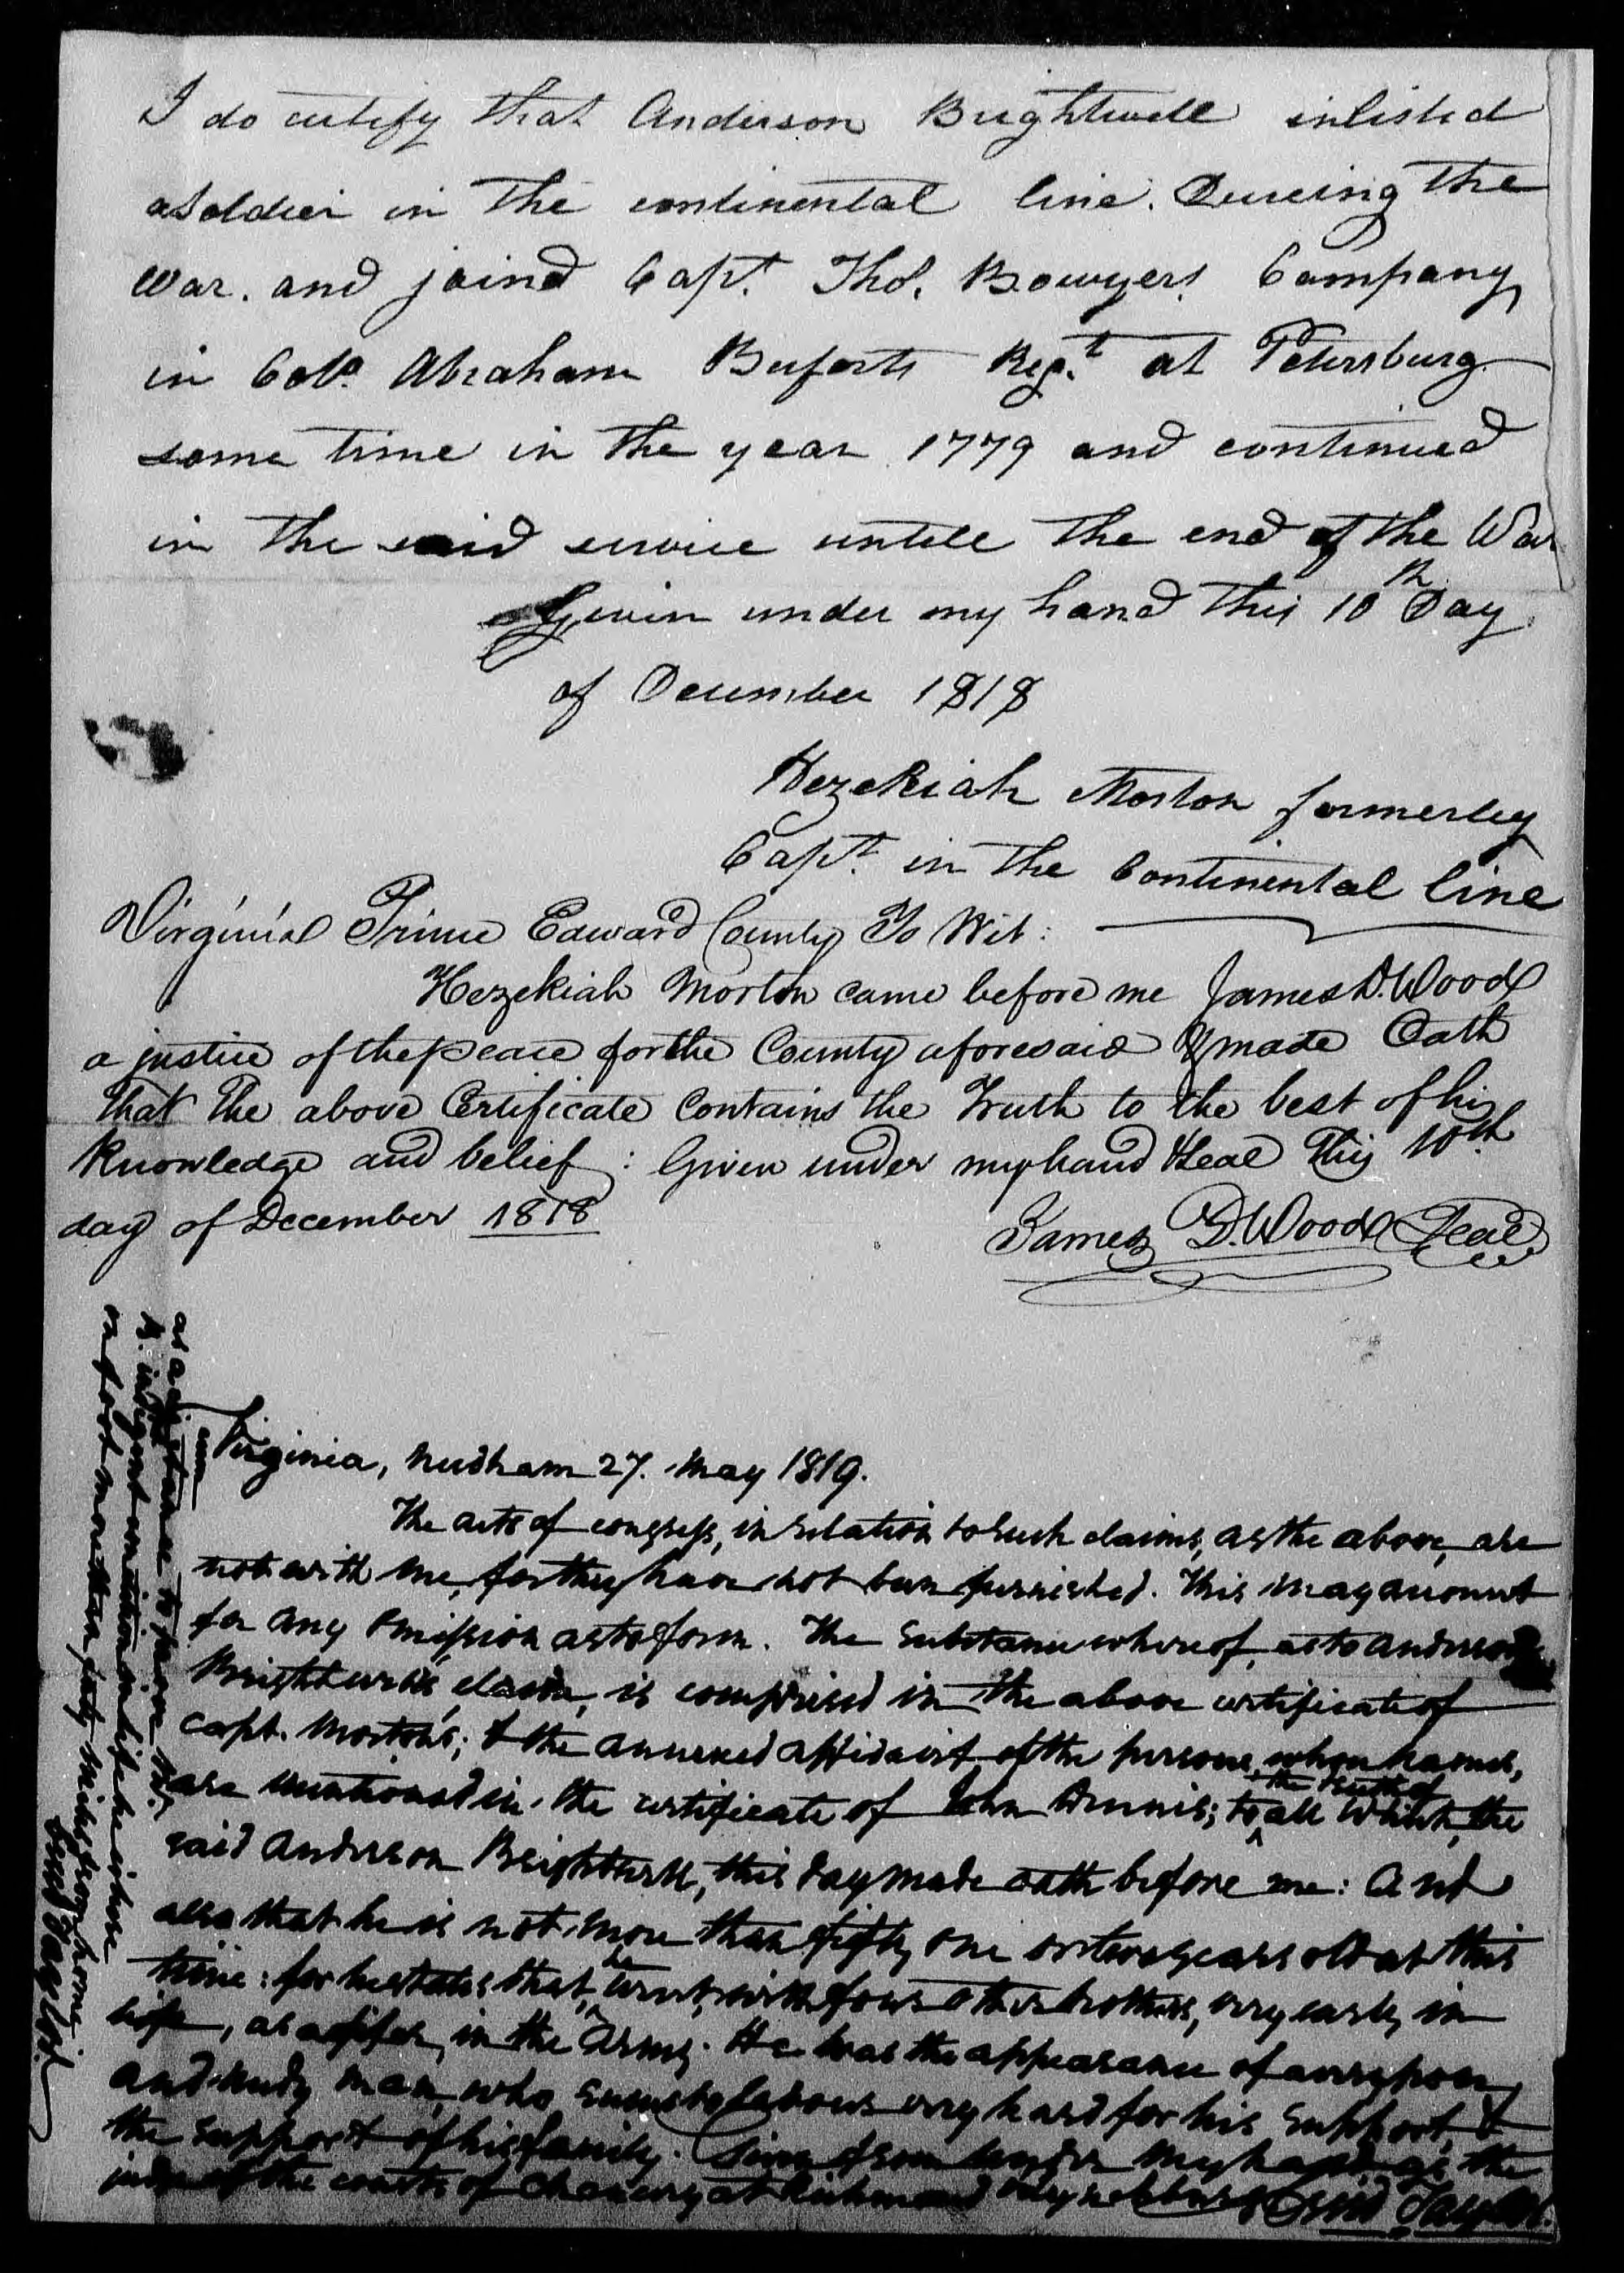 I do certify that Anderson Brightwell inlisted
a soldier in the continental line. During the
War. and joind Capt. Thos. Bowyers Company
in Colo. Abraham Buforts Regt. at Petersburg
some time in the year 1779 and continued
in the said service untill the end of the War
Given under my hand this 10th Day
of December 1818
Hezekiah Morton formerley
Capt. in the Continental line
Virginia Prince Edward County To Wit:
Hezekiah Morton came before me James D. Wood
a justice of the peace for the County aforesaid & made Oath
that the above Certificate Contains the Truth to the best of his
Knowledge and belief: Given under my hand & Seal This 10th
day of December 1818
James D. Wood Seal
Virginia, Needham 27. May 1819.
The acts of congress, in relation to such claims, as the above, are
not with me, for they have not been furnished. This may account
for any omission as to form. The substance whereof, as to Anderson
Brightwell's claim, is comprised in the above certificate of
capt. Morton's; & the annexed affidavit of the persons, whose names,
are mentioned in the certificate of John ; to the truth of all which, the
said Anderson Brightwell, this day made oath before me: And
also that he is not more than fifty one or two years old at this
time: for he states that, he went, with four other brothers, very early in
life, as a fifer, in the Army. He has the appearance of a very poor
and needy man, who seems to labour very hard for his support, &
the support of his family. Given from under my hand, as the
judge of the courts of chancery at Richmond & Creed Taylor.
assistance to
B. indigent condition in life he whose
on foot more than sixty miles from home
Creed Taylor.